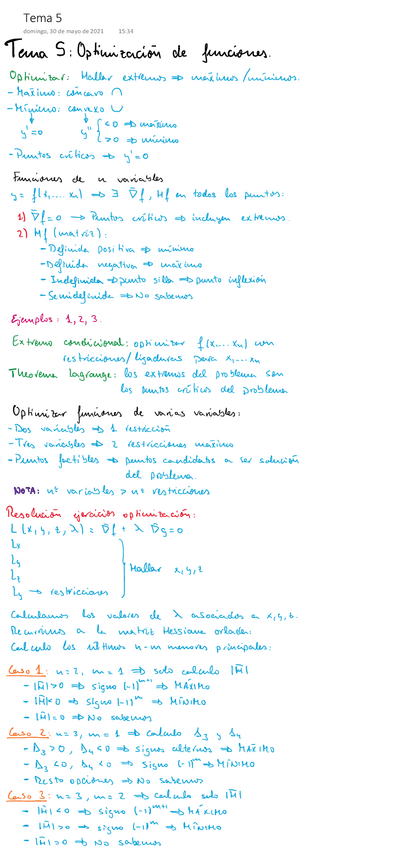 Tema 5
domingo, 30 de mayo de 2021 15:34
Tema 5: Optimización de funciones.
Optimizar: Hallar extremos ⇒ máximos/mínimos.
- Máximo: cóncavo ∩
- Mínimo: convexo ∪
y'=0 y'' { <0 ⇒ máximo
>0 ⇒ mínimo
- Puntos críticos ⇒ y'=0
Funciones de n variables
y = f(x,... xn) ⇒ ∃ ∇̄f, Hf en todos los puntos:
1) ∇̄f=0 → Puntos críticos ⇒ incluyen extremos.
2) Hf (matriz):
- Definida positiva ⇒ mínimo
- Definida negativa ⇒ máximo
- Indefinida ⇒ punto silla ⇒ punto inflexión
- Semidefinida ⇒ No sabemos
Ejemplos: 1, 2, 3.
Extremo condicional: optimizar f(x,... xn) con
restricciones/ligaduras para x,... xn
Theorema lagrange: los extremos del problema son
los puntos críticos del problema
Optimizar funciones de varias variables:
- Dos variables ⇒ 1 restricción
- Tres variables ⇒ 2 restricciones máximo
- Puntos factibles ⇒ puntos candidatos a ser solución
del problema.
NOTA: nº variables > nº restricciones
Resolución ejercicios optimización:
L(x, y, z, λ) = ∇̄f + λ ∇̄g = 0
Lx
Ly
Lz Hallar x, y, z
Lg → restricciones
Calculamos los valores de λ asociados a x, y, z.
Recurrimos a la matriz Hessiana orlada:
Calculo los últimos n-m menores principales:
Caso 1: n=2, m=1 ⇒ solo calculo |H̄|
- |H̄|>0 ⇒ signo (-1)^m+1 ⇒ MÁXIMO
- |H̄|<0 ⇒ signo (-1)^m ⇒ MÍNIMO
- |H̄|=0 ⇒ No sabemos
Caso 2: n=3, m=1 ⇒ calculo Δ3 y Δ4
- Δ3>0, Δ4<0 ⇒ signos alternos ⇒ MÁXIMO
- Δ3<0, Δ4<0 ⇒ signo (-1)^m ⇒ MÍNIMO
- Resto opciones ⇒ No sabemos
Caso 3: n=3, m=2 ⇒ calculo solo |H̄|
- |H̄|<0 ⇒ signo (-1)^m+1 ⇒ MÁXIMO
- |H̄|>0 ⇒ signo (-1)^m ⇒ MÍNIMO
- |H̄|=0 ⇒ No sabemos